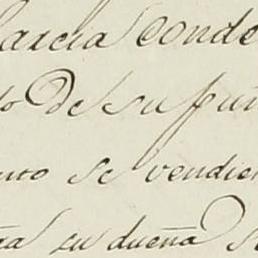 Garcia Conde
do De su pun
uto se vendie
ra su dueña s